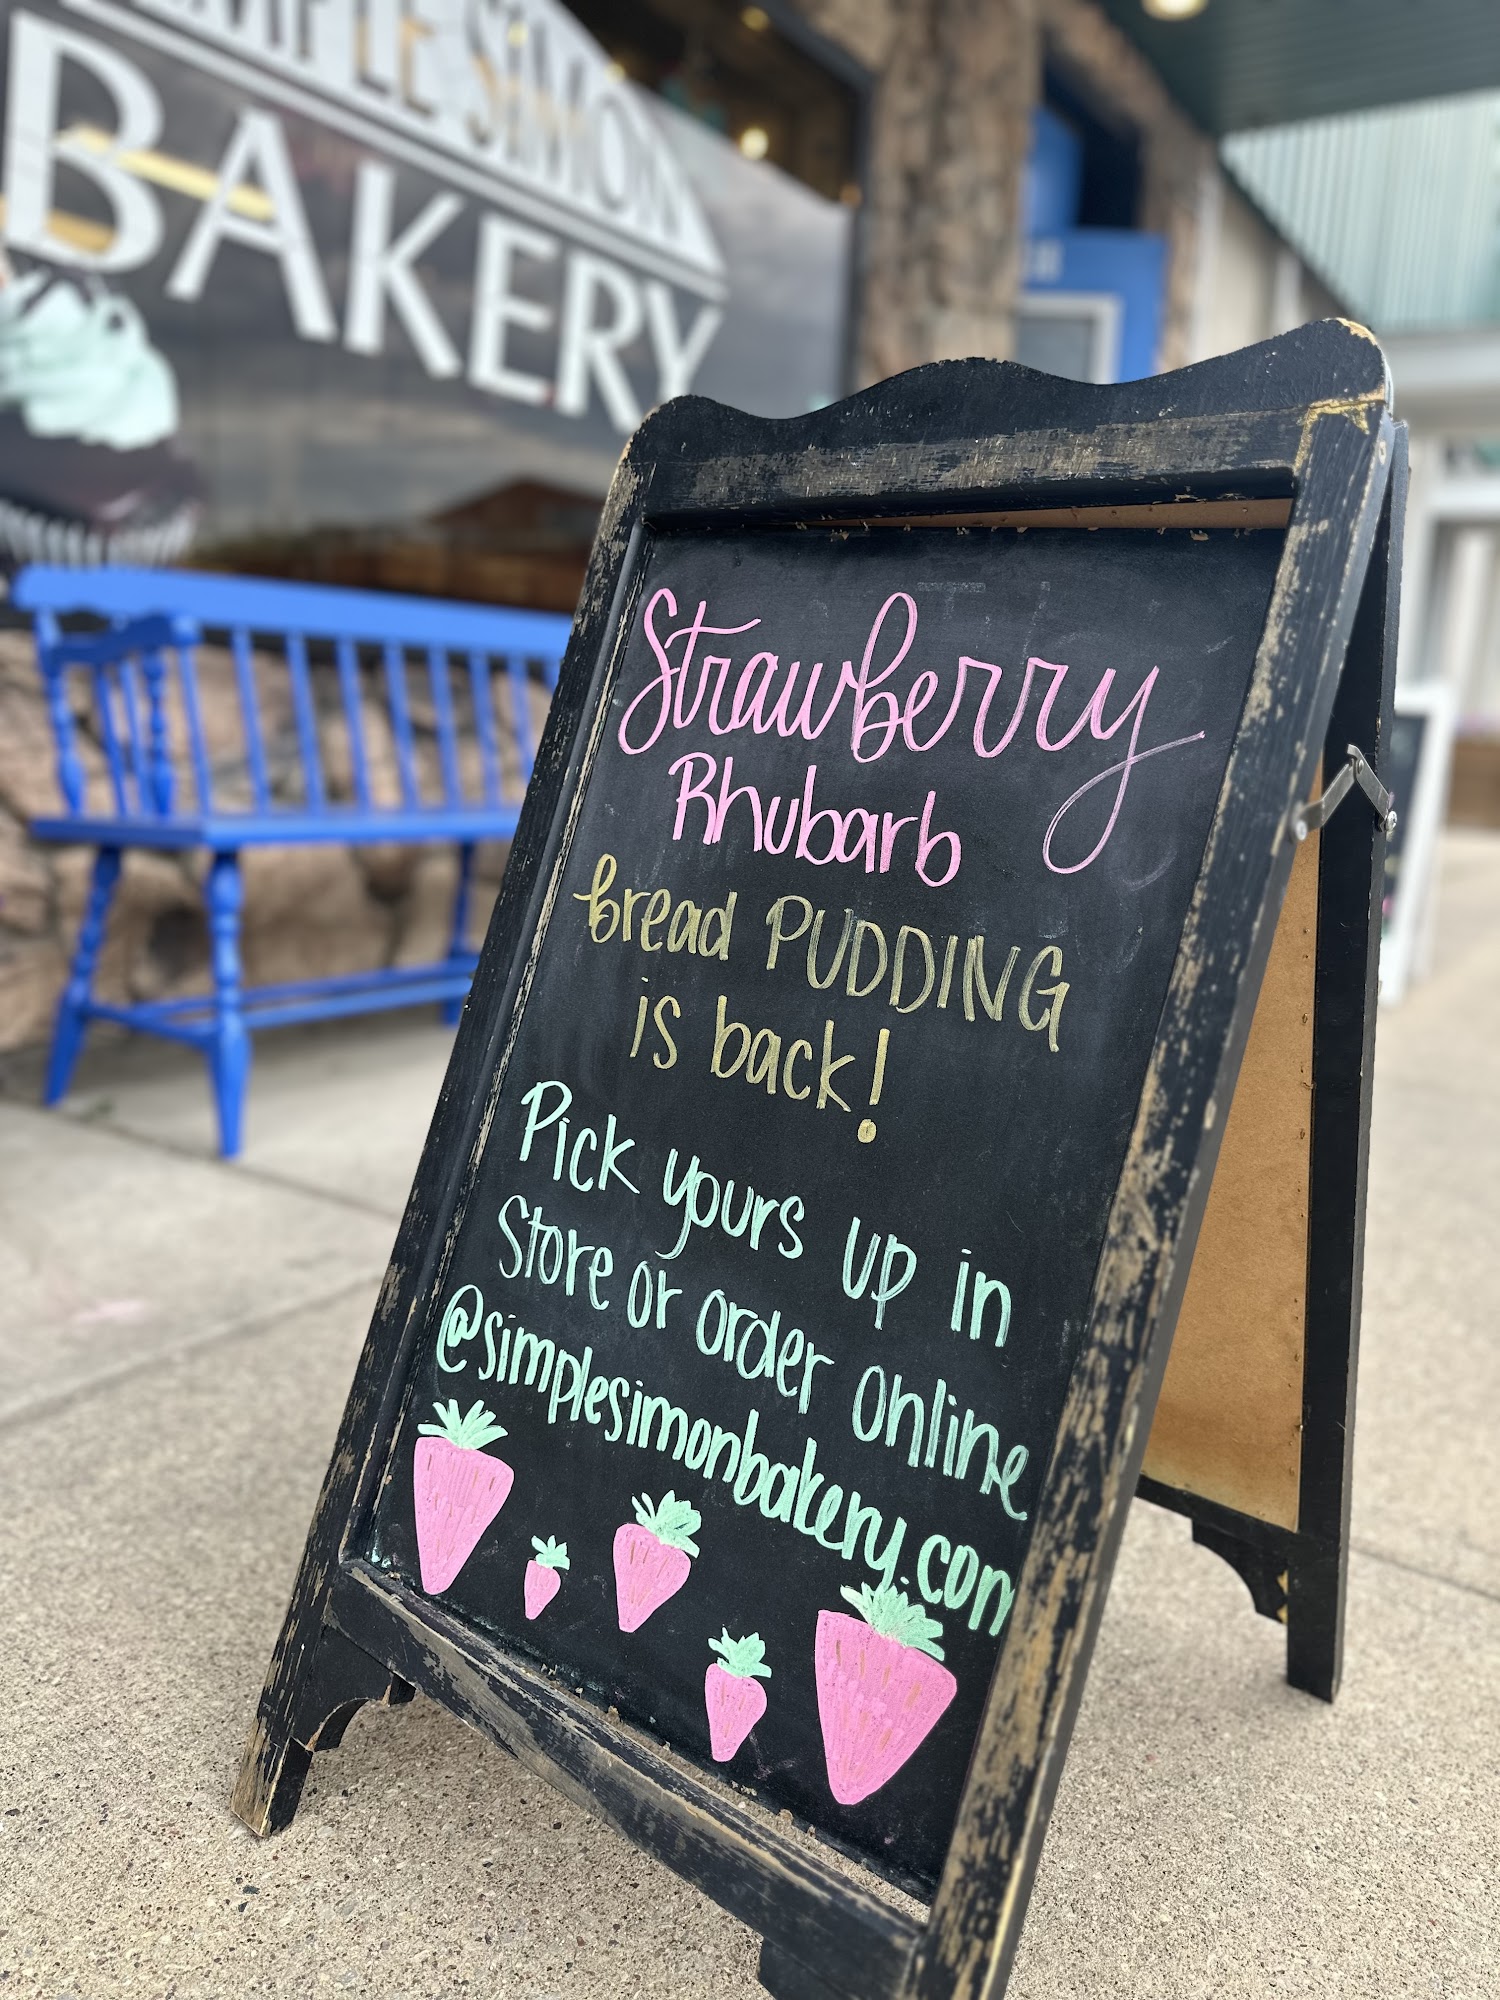 SIMPLE SIMON
BAKERY
Strawberry
Rhubarb
bread PUDDING
is back!
Pick yours up in
Store or order online
@simplesimonbakery.com